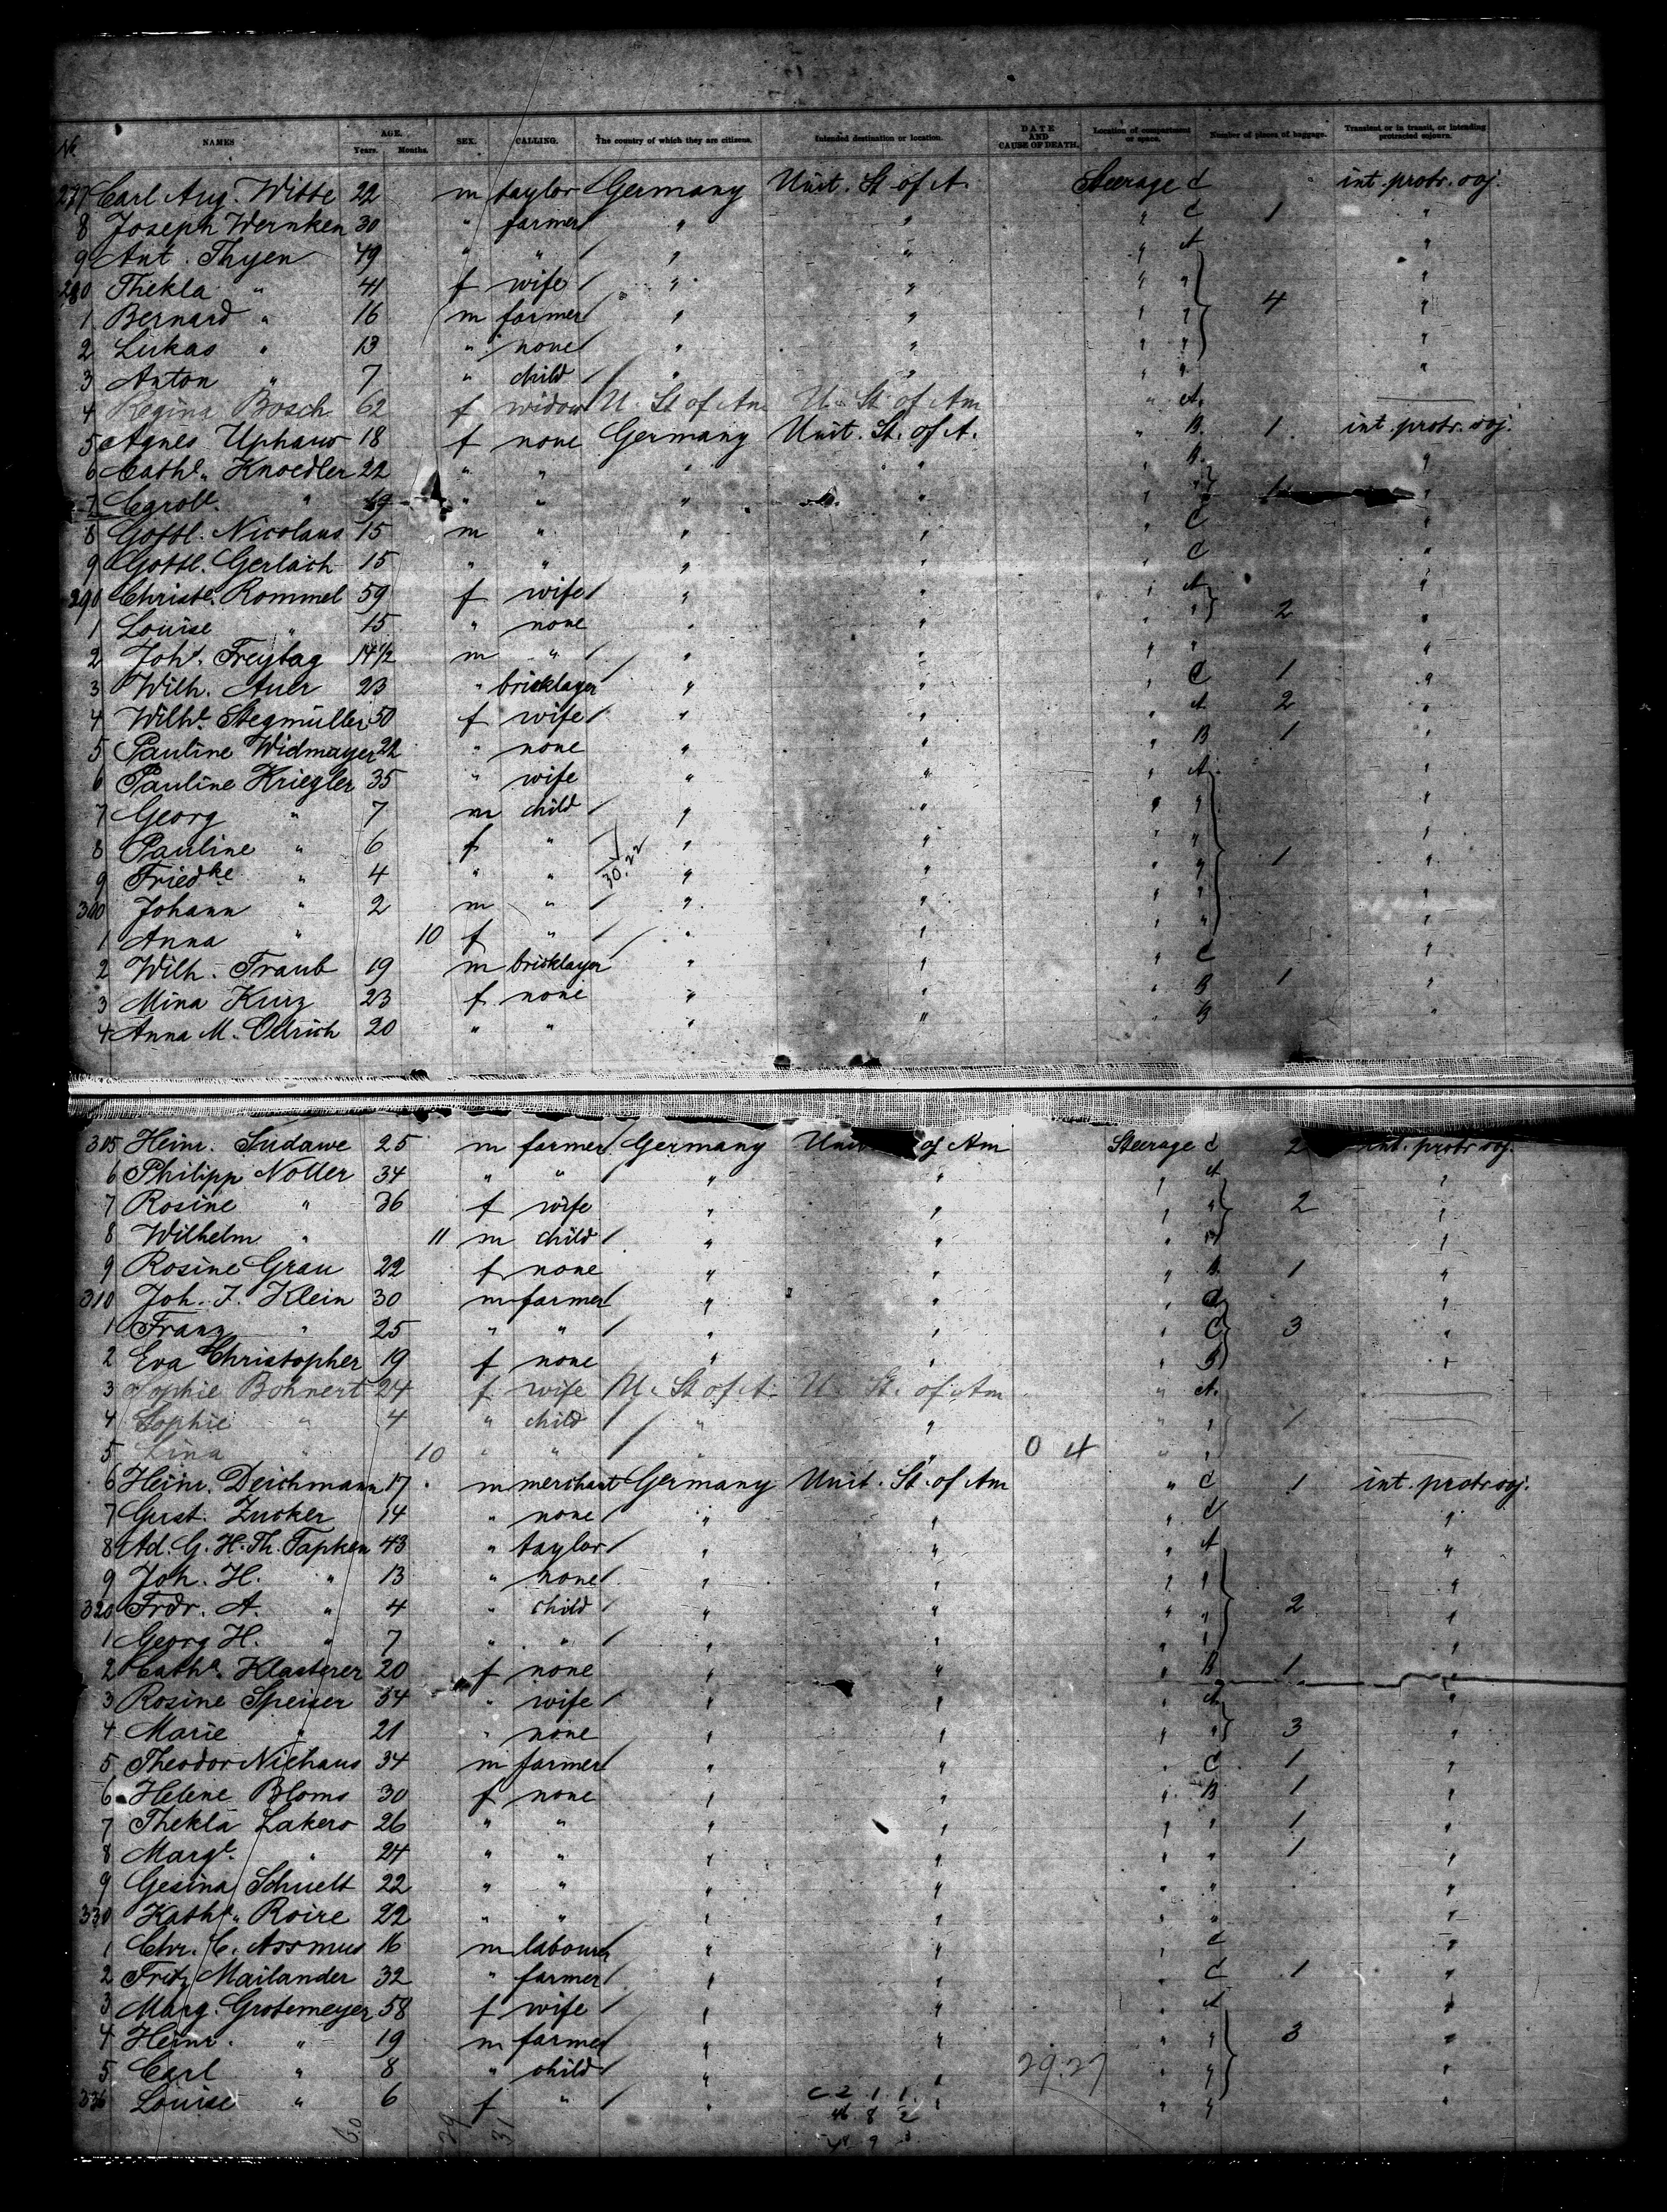 No. NAMES AGE. Years. Months. SEX. CALLING. The country of which they are citizens. Intended destination or location. DATE AND CAUSE OF DEATH. Location of compartment or space. Number of pieces of baggage. Transient or in transit, or intending protracted sojourn.
277 Carl Aug. Witte 22 m taylor Germany Unit. St. of A. Steerage C int. protr. soj.
8 Joseph Wernken 30 " farmer " " " C 1 "
9 Ant. Thyen 49 " " " " " A "
280 Thekla " 41 f wife " " " " 4 "
1 Bernard " 16 m farmer " " " " "
2 Lukas " 13 " none " " " " "
3 Anton " 7 " child " " " " "
4 Regina Bosch 62 f widow U. St of Am U. St. of Am " A.
5 Agnes Uphaus 18 f none Germany Unit. St. of A. " B. 1 int. protr. soj.
6 Cathe. Knoedler 22 " " " " " B. "
7 Carole. " 19 " " " " " " 1 "
8 Gottl. Nicolaus 15 m " " " " C "
9 Gottl. Gerlach 15 " " " " " C "
290 Christe. Rommel 59 f wife " " " A "
1 Louise " 15 " none " " " " 2 "
2 Johs. Freytag 14 1/2 m " " " " " "
3 Wilh. Auer 23 " bricklayer " " " C 1 "
4 Wilhe. Stegmüller 50 f wife " " " A 2 "
5 Pauline Widmayer 22 " none " " " B 1 "
6 Pauline Kriegler 35 " wife " " " A "
7 Georg " 7 m child " " " " "
8 Pauline " 6 f " " " " " "
9 Friedke " 4 " " 30.22 " " " " 1 "
300 Johann " 2 m " " " " " "
1 Anna " 10 f " " " " " "
2 Wilh. Traub 19 m bricklayer " " " C "
3 Mina Kurz 23 f none " " " B 1 "
4 Anna M. Oelrich 20 " " " " " B "
305 Heinr. Sudawe 25 m farmer Germany of Am Steerage C 2 int. protr. soj.
6 Philipp Notter 34 " " " " " A "
7 Rosine " 36 f wife " " " " 2 "
8 Wilhelm " 11 m child " " " " "
9 Rosine Grau 22 f none " " " B. 1 "
310 Joh. J. Klein 30 m farmer " " " C "
1 Franz " 25 " " " " " C 3 "
2 Eva Christopher 19 f none " " " B "
3 Sophie Bohnert 24 f wife U. St of A. U. St. of Am " A.
4 Sophie " 4 " child " " " " 1
5 Lina " 10 " " " " 0 4 " "
6 Heinr. Deichmann 17 m merchant Germany Unit. St. of Am " C 1 int. protr. soj.
7 Gust. Zucker 14 " none " " " C "
8 Ad. G. H. Th. Tapken 43 " taylor " " " A "
9 Joh. H. " 13 " none " " " " "
320 Frdr. A. " 4 " child " " " " 2 "
1 Georg H. " 7 " " " " " " "
2 Cathe. Klasterer 20 f none " " " B 1 "
3 Rosine Speiser 54 " wife " " " A "
4 Marie " 21 " none " " " " 3 "
5 Theodor Niehaus 34 m farmer " " " C 1 "
6 Helene Bloms 30 f none " " " B 1 "
7 Thekla Lakers 26 " " " " " " 1 "
8 Marge. " 24 " " " " " " 1 "
9 Gesina Schuelt 22 " " " " " " "
330 Kathe. Roire 22 " " " " " " "
1 Chr. C. Assmus 16 m labourer " " " C "
2 Fritz Mailander 32 " farmer " " " C 1 "
3 Marg. Grotemeyer 58 f wife " " " A "
4 Heinr. " 19 m farmer " " " " 3 "
5 Carl " 8 " child " " 29.27 " " "
336 Louise " 6 f " " " " " "
C. 2 1 1.
46 8 2
60 29 31 48 9 3